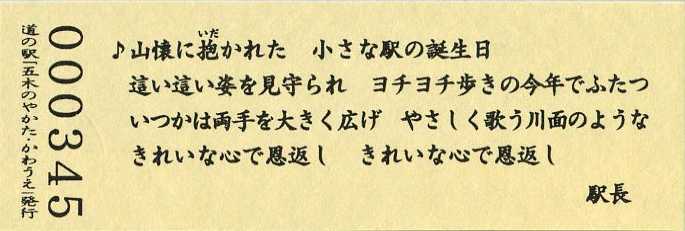 ♪山懐に抱かれた　小さな駅の誕生日
這い這い姿を見守られ　ヨチヨチ歩きの今年でふたつ
いつかは両手を大きく広げ　やさしく歌う川面のような
きれいな心で恩返し　きれいな心で恩返し
駅長
000345
道の駅「五木のやかた・かわうえ」発行
いだ